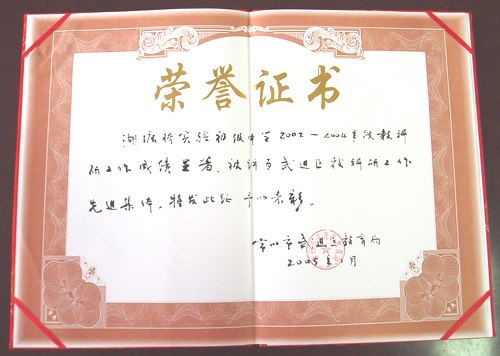 荣誉证书
湖塘桥实验初级中学2002-2004年度教科
研工作成绩显著,被评为武进区教科研工作
先进集体。特发此证 予以表彰。
常州市武进区教育局
2005年1月